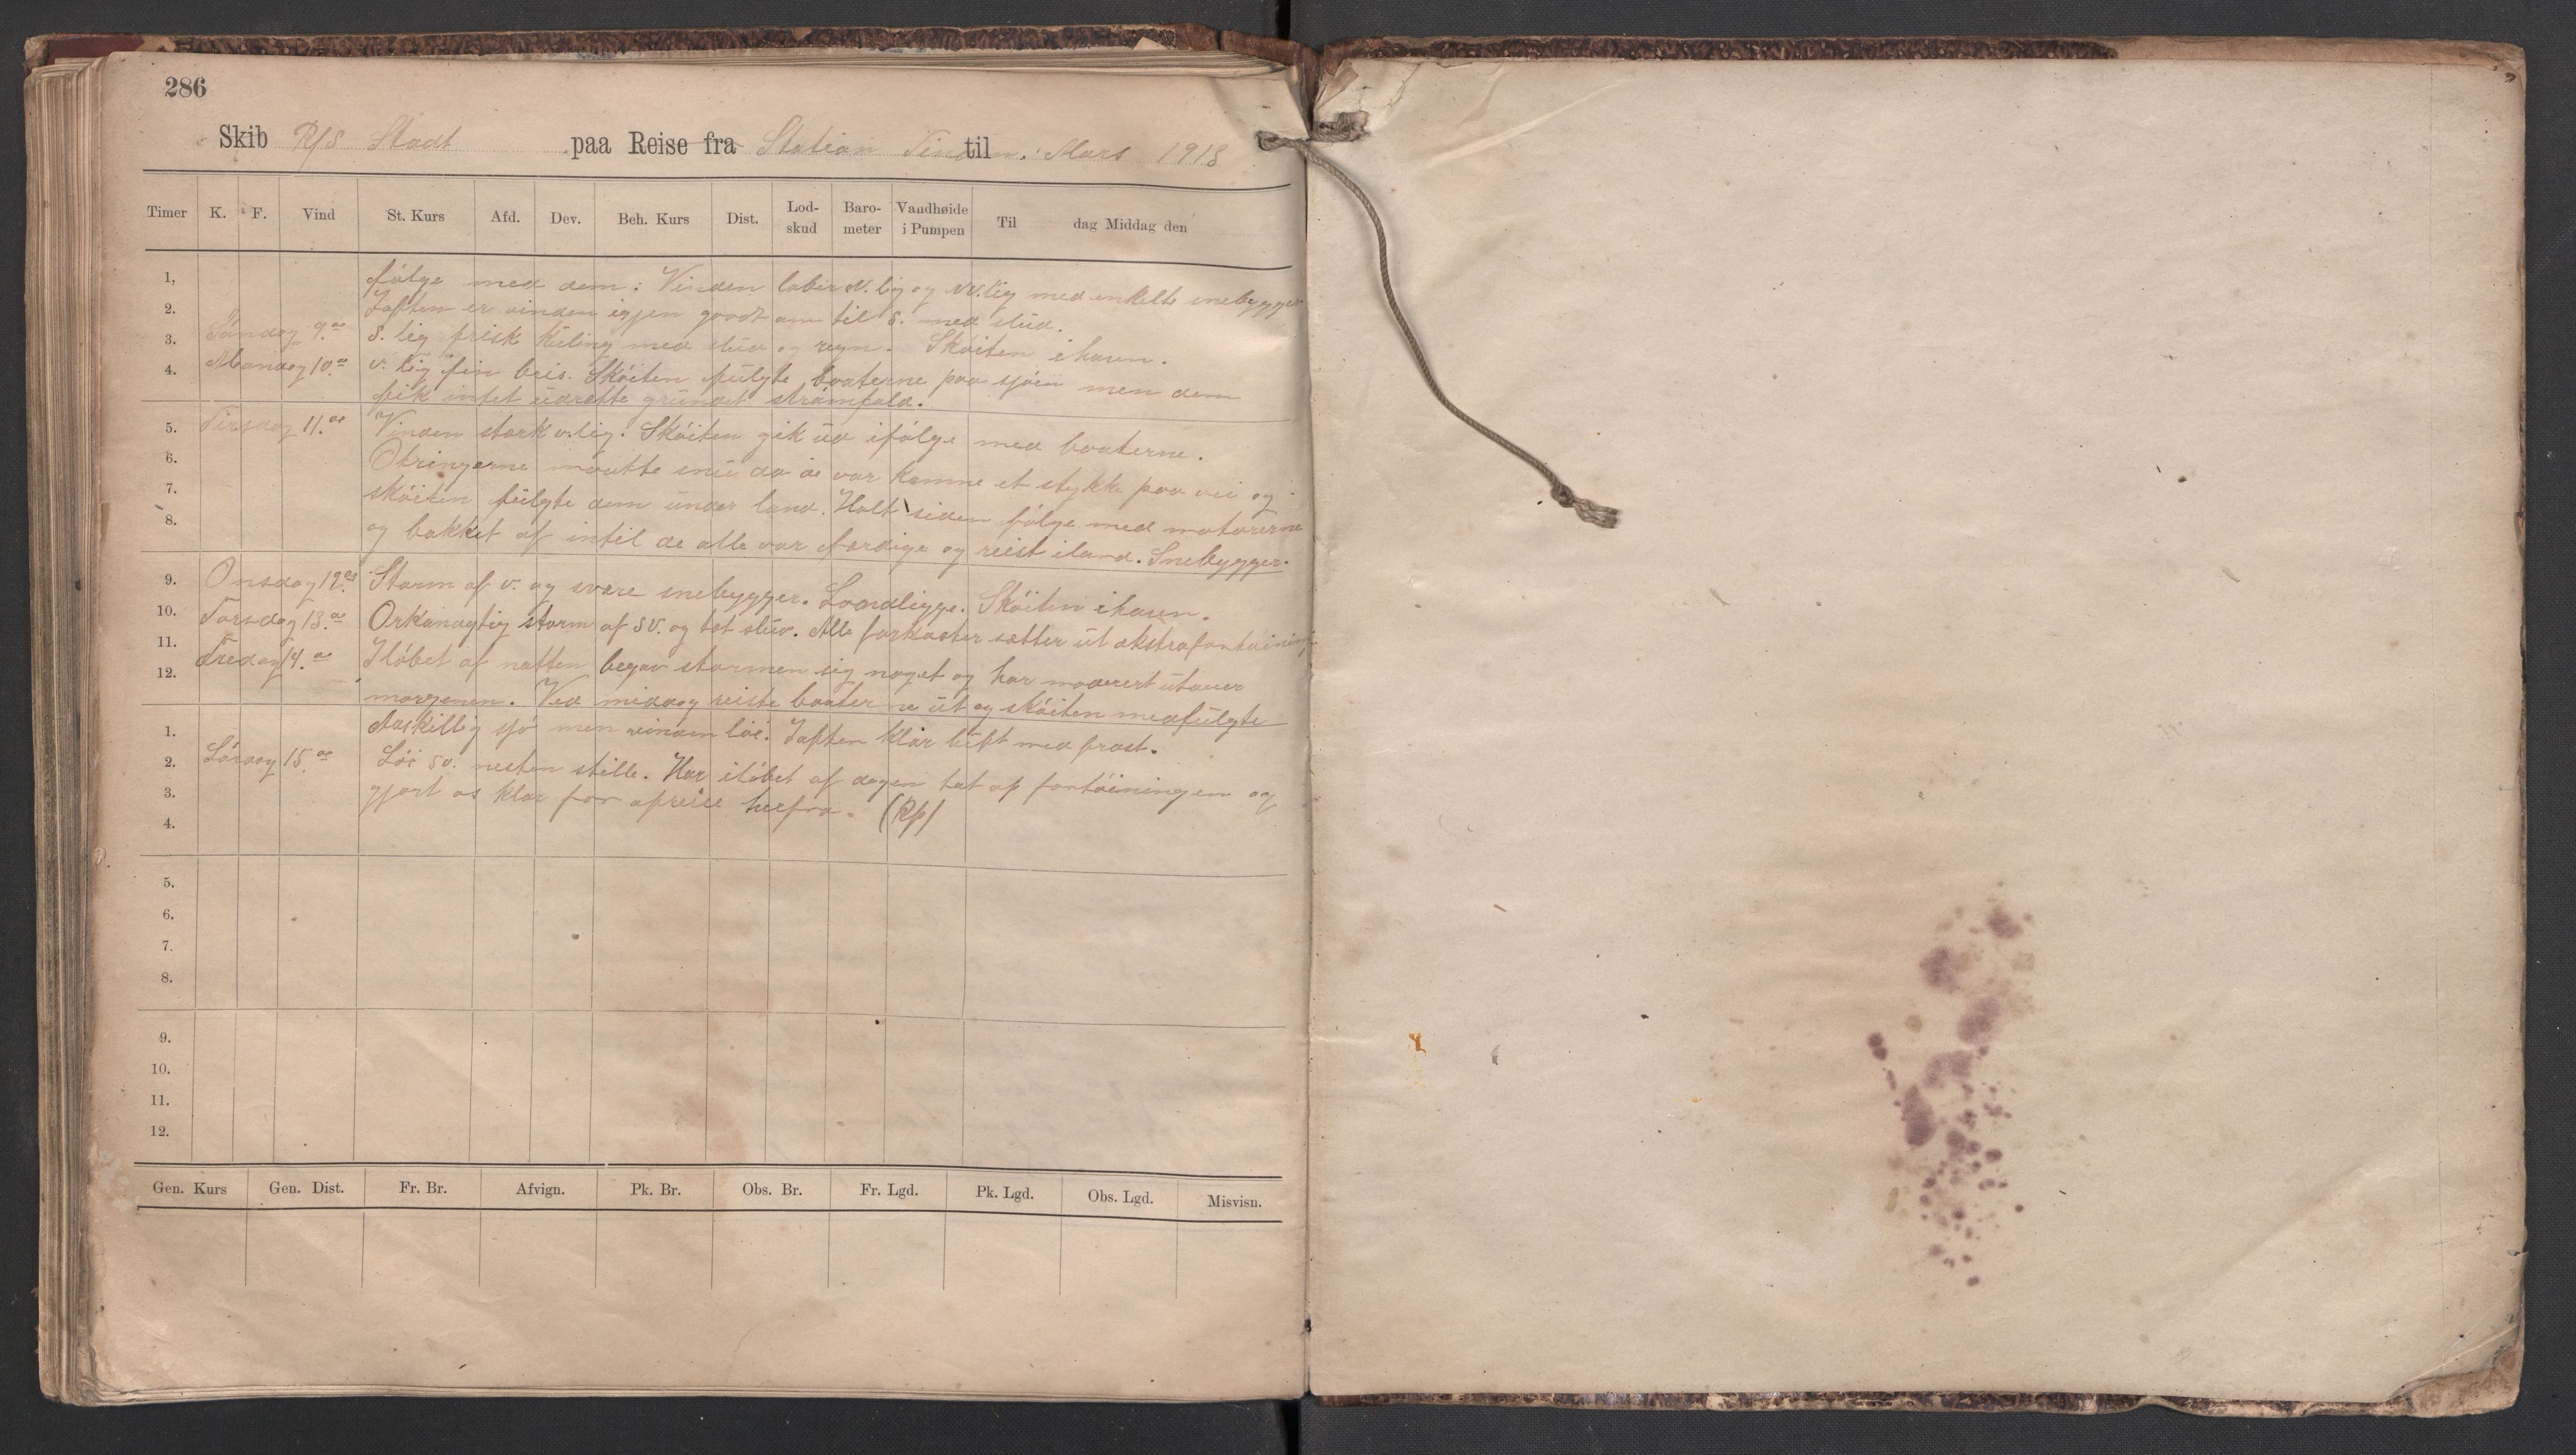 286
Skib R/S Stadt paa Reise fra Station Tinden. til Mars 1913
Timer K. F. Vind St. Kurs Afd. Dev. Beh. Kurs Dist. Lod-skud Baro-meter Vandhøide i Pumpen Til dag Middag den
1, følge med dem: Vinden laber N.lig og NV.lig med enkelte snebygger
2. Iaften er vinden igjen gaadt om til S. med slud.
3. Søndag 9.de S.lig frisk kuling med slud og regn. Skøiten ihavn.
4. Mandag 10.de V.lig fin bris. Skøiten fulgte baaterne paa sjøen men dem
fik intet udrette grundet strømfald.
5. Tirsdag 11.de Vinden stark v.lig. Skøiten gik ud ifølge med baaterne.
6. Otringerne maatte snu da de var komne et stykke paa vei og
7. skøiten fulgte dem under land. Holt siden følge med motorerne
8. og bakket af intil de alle var færdige og reist iland. Snebygger.
9. Onsdag 12.de Storm af v. og svære snebygger. Landligge. Skøiten ihavn.
10. Torsdag 13.de Orkanagtig storm af SV. og tæt slud. Alle farkoster sætter ut ekstrafortøining
11. Fredag 14.de Iløbet af natten begav stormen sig noget og har moderert utover
12. morgenen. Ved middag reiste baaterne ut og skøiten medfulgte
1. Adskillig sjø men vinden løi. Iaften klar luft med frost.
2. Lørdag 15.de Løi SV. nesten stille. Har iløbet af dagen tat op fortøiningen og
3. gjort os klar for afreise herfra. (Rp)
4.
5.
6.
7.
8.
9.
10.
11.
12.
Gen. Kurs Gen. Dist. Fr. Br. Afvign. Pk. Br. Obs. Br. Fr. Lgd. Pk. Lgd. Obs. Lgd. Misvisn.